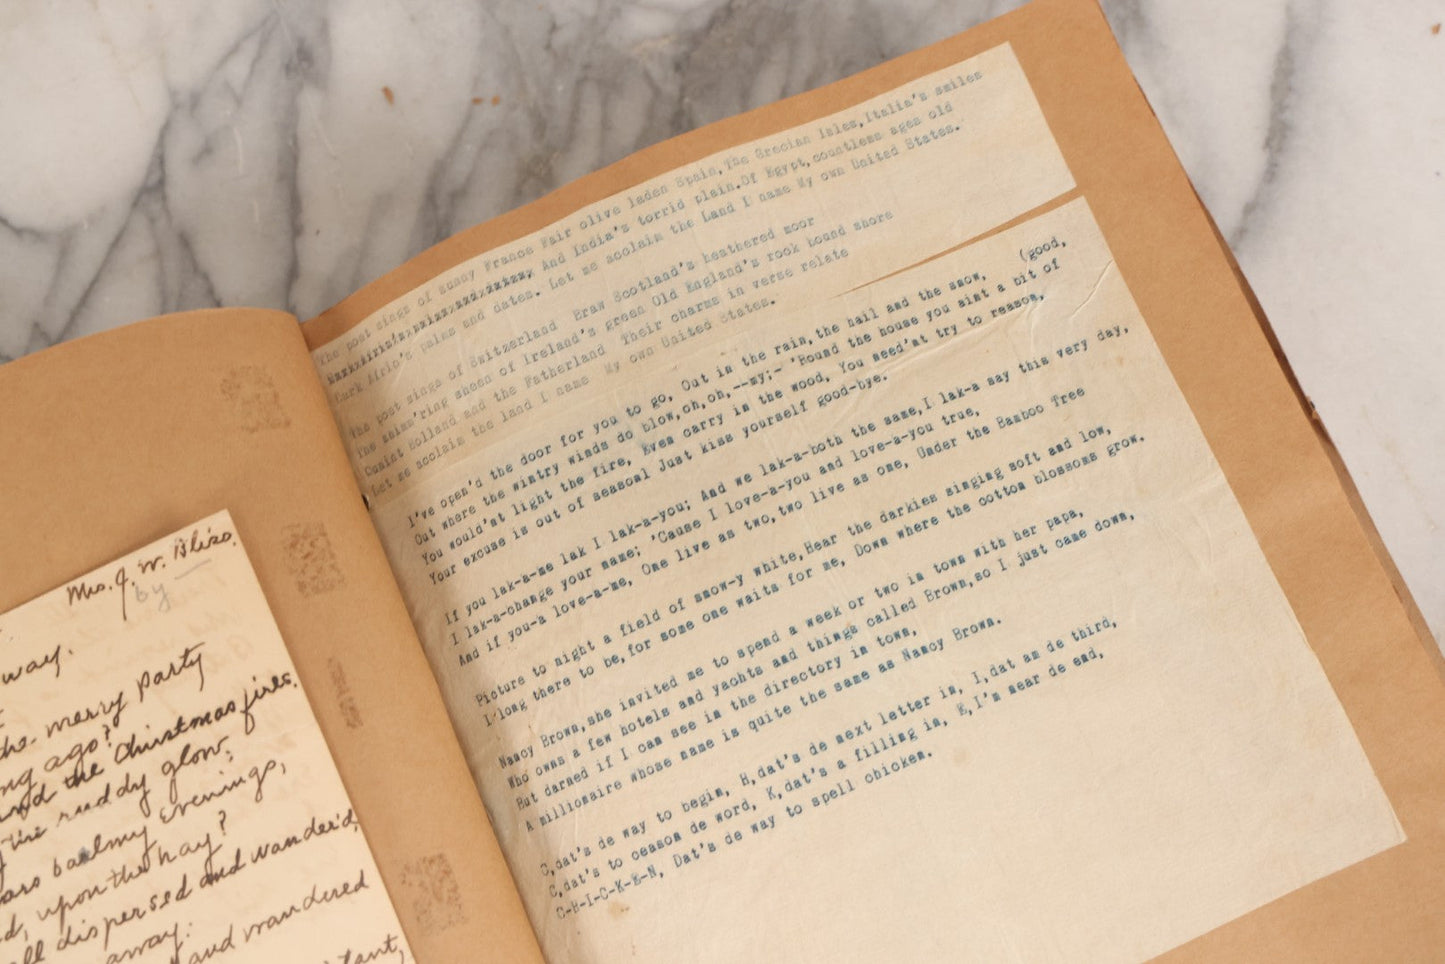 Mrs. J. W. Bliss.
by
way.
the merry party
ng ago?
and the Christmas fires.
the ruddy glow;
balmy evenings,
d, upon the hay?
all dispersed and wander'd,
away:
and wandered
tant,
The post sings of sunny France Fair olive laden Spain,The Grecian Isles,Italia's smiles
And India's torrid plain.Of Egypt,countless ages old
Dark Afric's palms and dates. Let me acclaim the Land I name My own United States.
The post sings of Switzerland Braw Scotland's heathered moor
The shimm'ring sheen of Ireland's green Old England's rock bound shore
Quaint Holland and the Fatherland Their charms in verse relate
Let me acclaim the land I name My own United States.
I've open'd the door for you to go, Out in the rain,the hail and the snow, (good,
Out where the wintry winds do blow,oh,oh,--my;- 'Round the house you aint a bit of
You would'nt light the fire, Even carry in the wood, You need'nt try to reason,
Your excuse is out of season! Just kiss yourself good-bye.
If you lak-a-me lak I lak-a-you; And we lak-a-both the same,I lak-a say this very day,
I lak-a-change your name; 'Cause I love-a-you and love-a-you true,
And if you-a love-a-me, One live as two,two live as one, Under the Bamboo Tree
Picture to night a field of snow-y white,Hear the darkies singing soft and low,
I long there to be,for some one waits for me, Down where the cotton blossoms grow.
Nancy Brown,she invited me to spend a week or two in town with her papa,
Who owns a few hotels and yachts and things called Brown,so I just came down,
But darned if I can see in the directory in town,
A millionaire whose name is quite the same as Nancy Brown.
C,dat's de way to begin, H,dat's de next letter in, I,dat am de third,
C,dat's to ceason de word, K,dat's a filling in, E,I'm near de end,
C-H-I-C-K-E-N, Dat's de way to spell chicken.